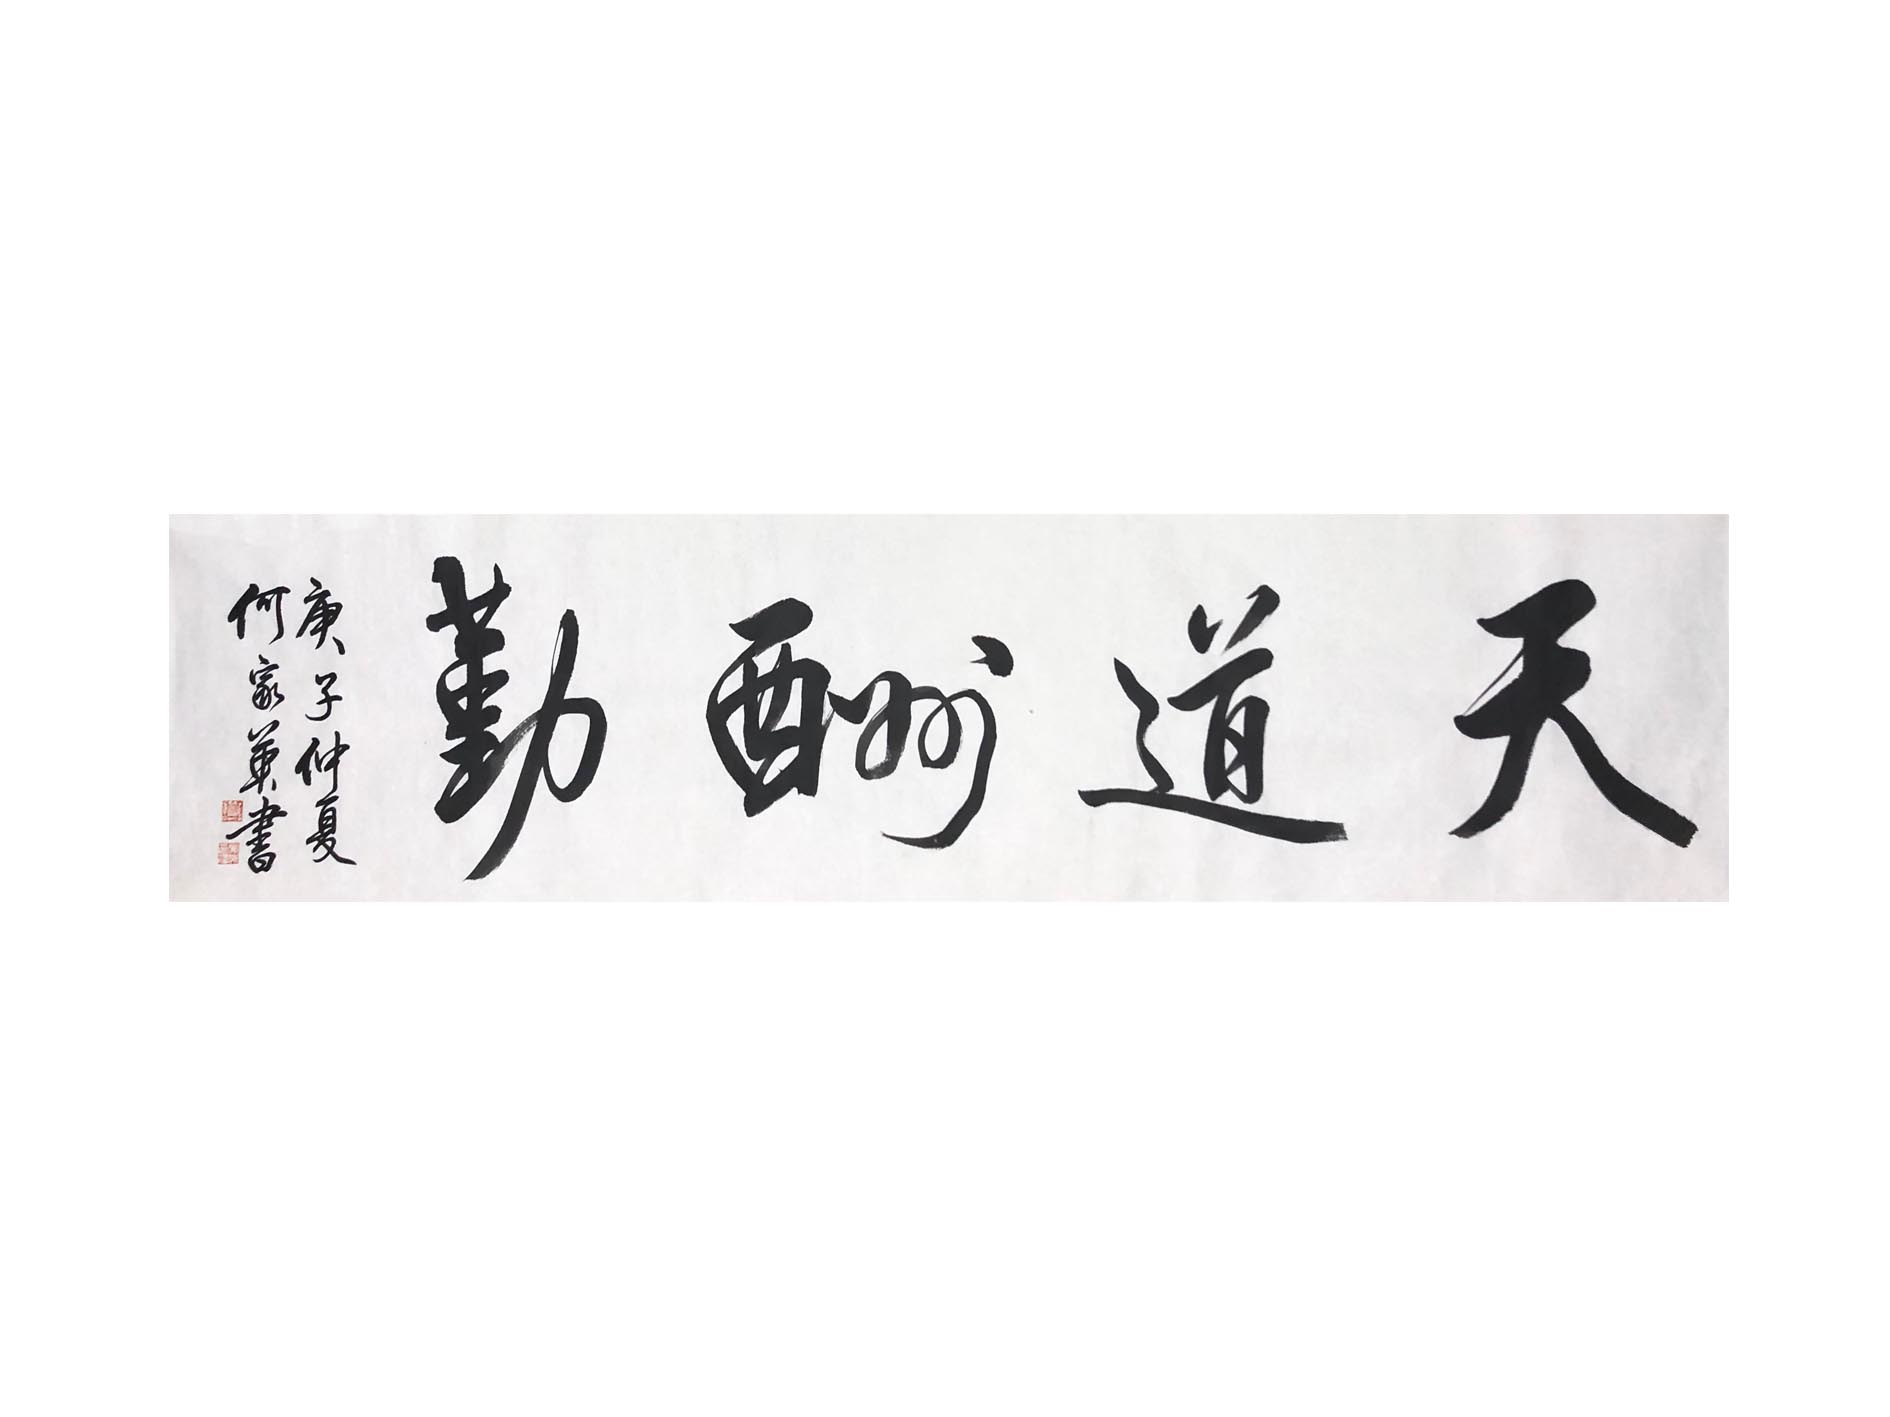 天道酬勤
庚子仲夏
何家英書